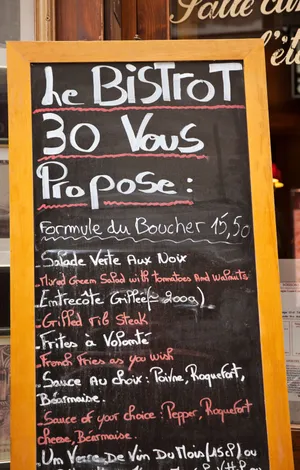 Salle
l'ét
Le BISTROT
30 Vous
Propose :
Formule du Boucher 15,50
- Salade Verte Aux Noix
- Mixed Green Salad with tomatoes And Walnuts
- Entrecôte Grillée (± 200g)
- Grilled rib Steak
- Frites à Volonté
- French Fries as you wish
- Sauce Au choix : Poivre, Roquefort,
Béarnaise.
- Sauce of your choice : Pepper, Roquefort
cheese, Béarnaise.
- Un Verre De Vin Du Mois (15cl) ou